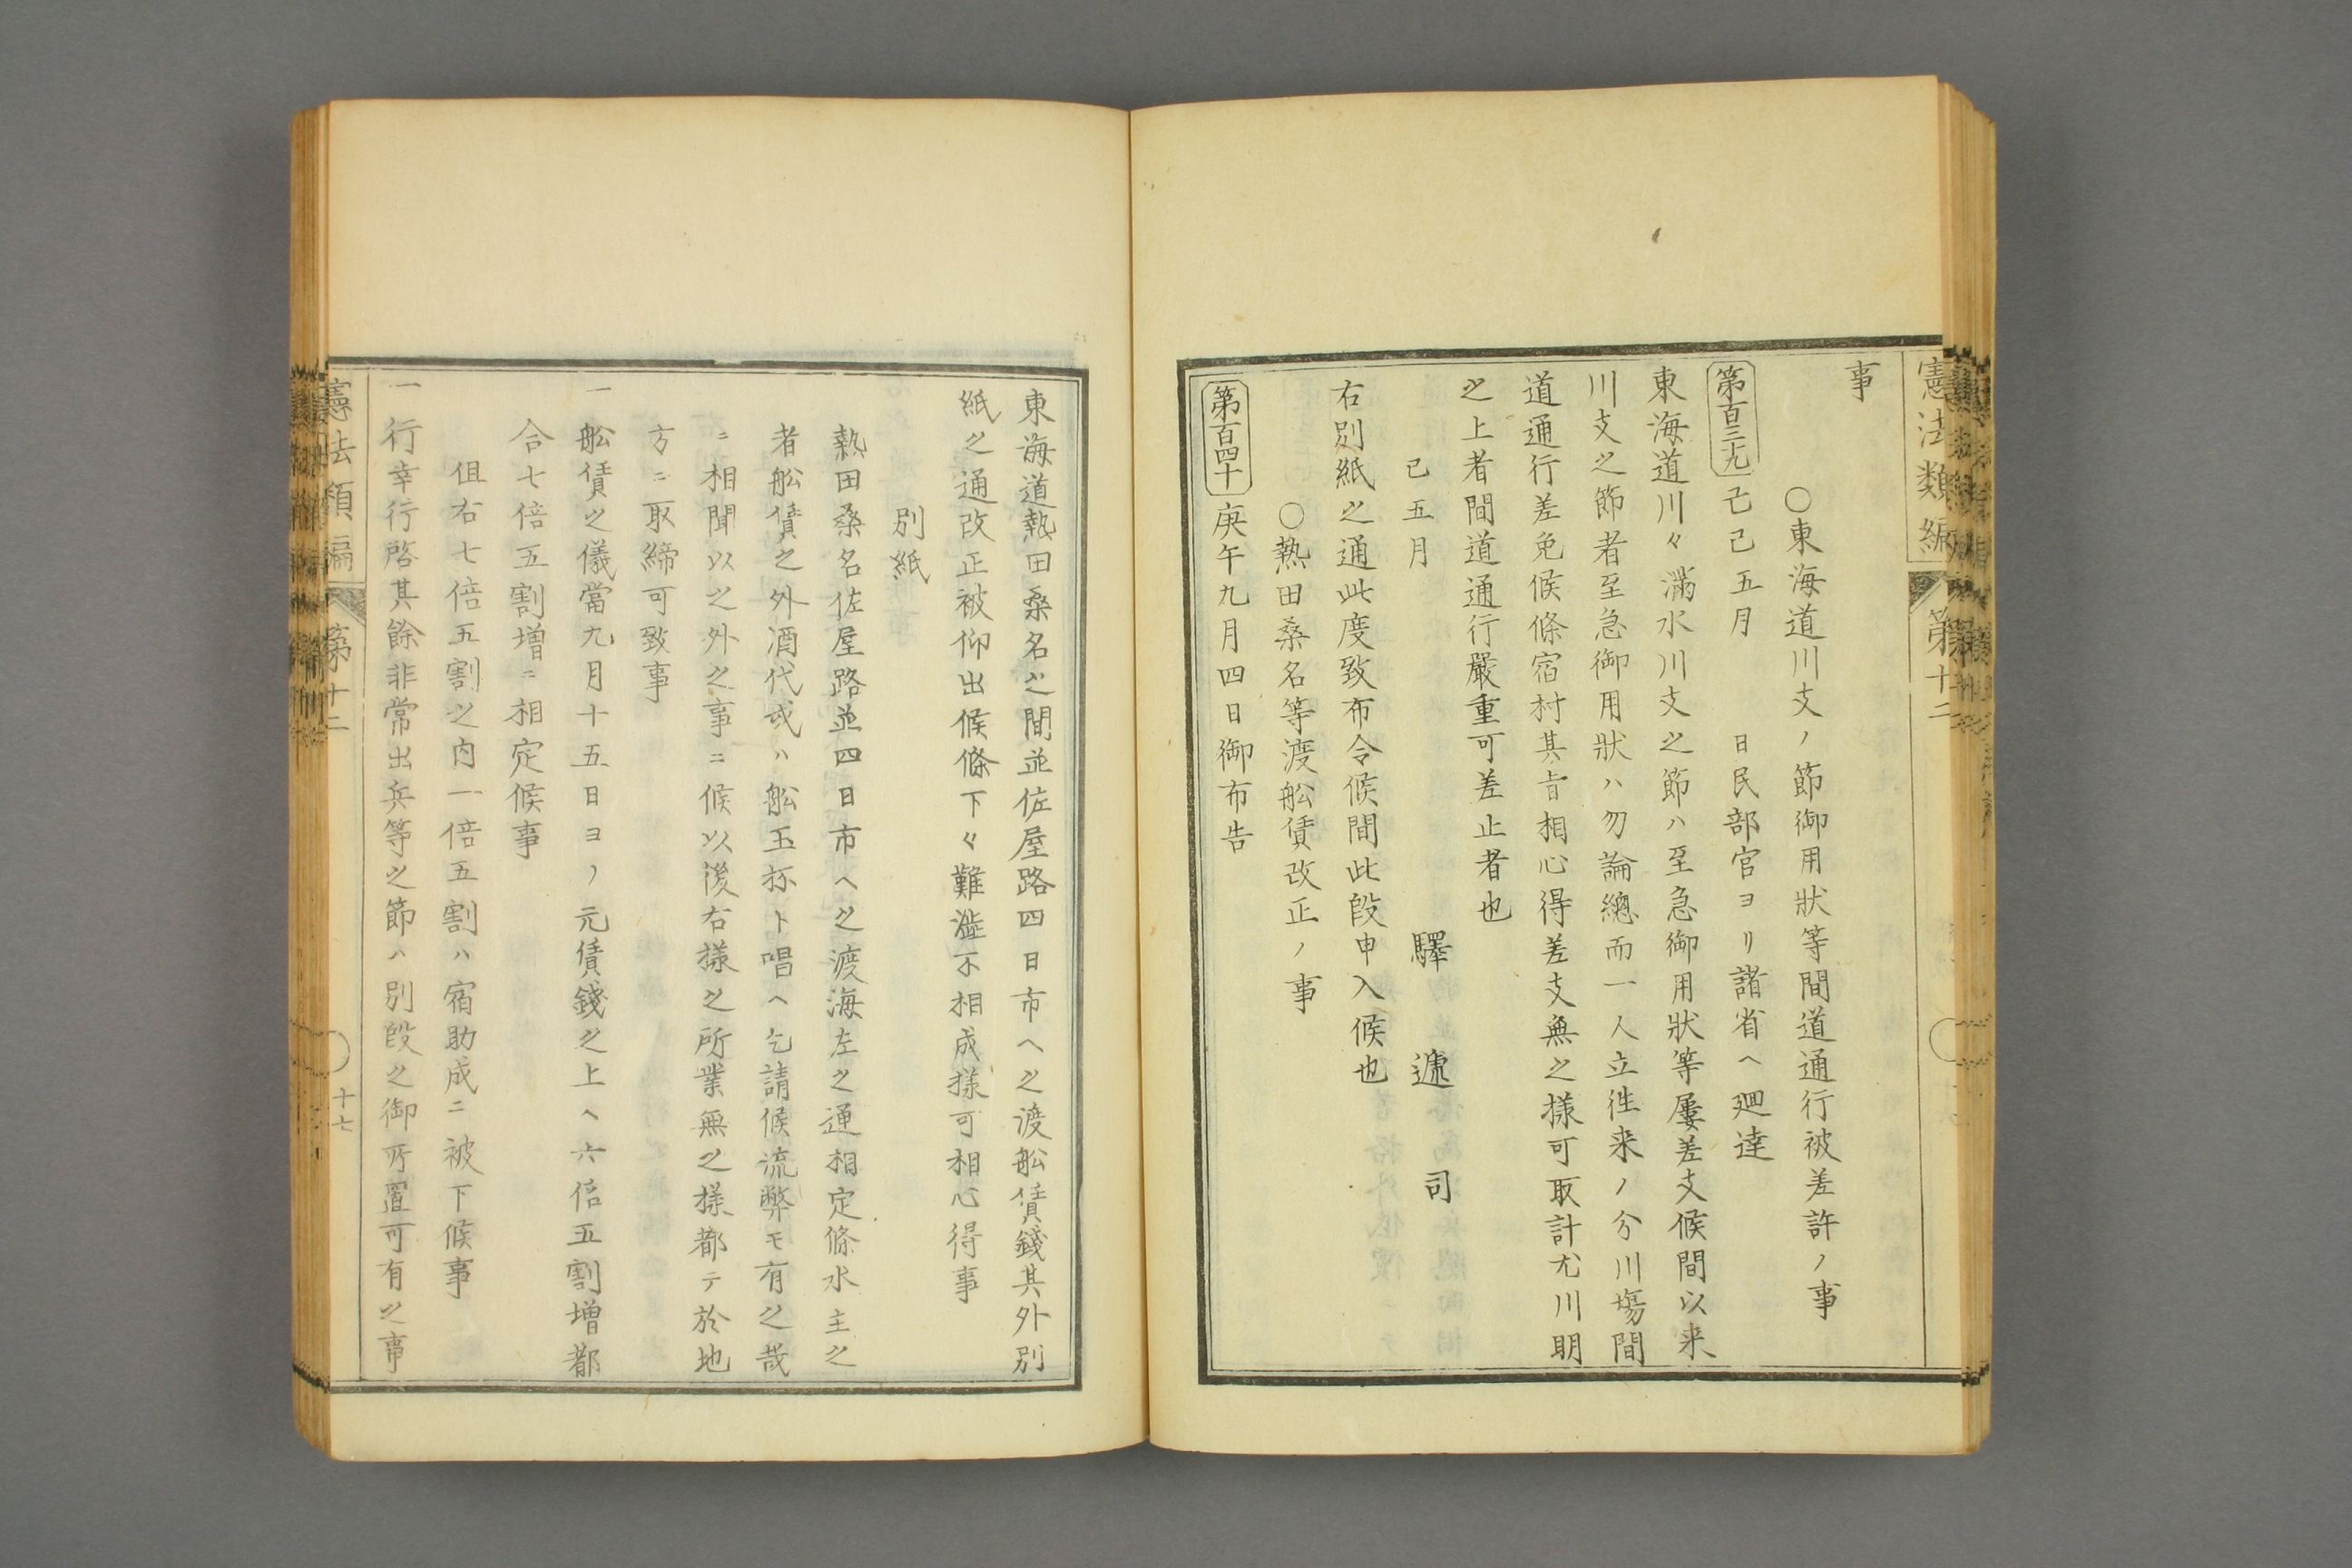 憲法類編 第十二
事
○東海道川支ノ節御用狀等間道通行被差許ノ事
第百三九 己巳五月 日民部官ヨリ諸省ヘ廻達
東海道川々滿水川支之節ハ至急御用狀等屢差支候間以来
川支之節者至急御用狀ハ勿論總而一人立徃来ノ分川塲間
道通行差免候條宿村其旨相心得差支無之樣可取計尤川明
之上者間道通行嚴重可差止者也
己五月
驛遞司
右別紙之通此度致布令候間此段申入候也
○熱田桑名等渡舩賃改正ノ事
第百四十 庚午九月四日御布告
東海道熱田桑名之間並佐屋路四日市ヘ之渡舩賃錢其外別
紙之通改正被仰出候條下々難澁不相成樣可相心得事
別紙
熱田桑名佐屋路並四日市ヘ之渡海左之通相定條水主之
者舩賃之外酒代或ハ舩玉抔ト唱ヘ乞請候流弊モ有之哉
ニ相聞以之外之事ニ候以後右樣之所業無之樣都テ於地
方ニ取締可致事
一舩賃之儀當九月十五日ヨリ元賃錢之上ヘ六倍五割增都
合七倍五割增ニ相定候事
但右七倍五割之内一倍五割ハ宿助成ニ被下候事
一行幸行啓其餘非常出兵等之節ハ別段之御所置可有之事
憲法類編 第十二 十七